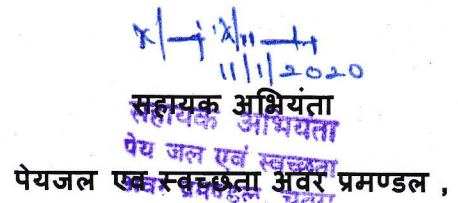 11/1/2020
सहायक अभियंता
सहायक अभियंता
पेय जल एवं स्वच्छता
पेयजल एवं स्वच्छता अवर प्रमण्डल ,
अवर प्रमण्डल